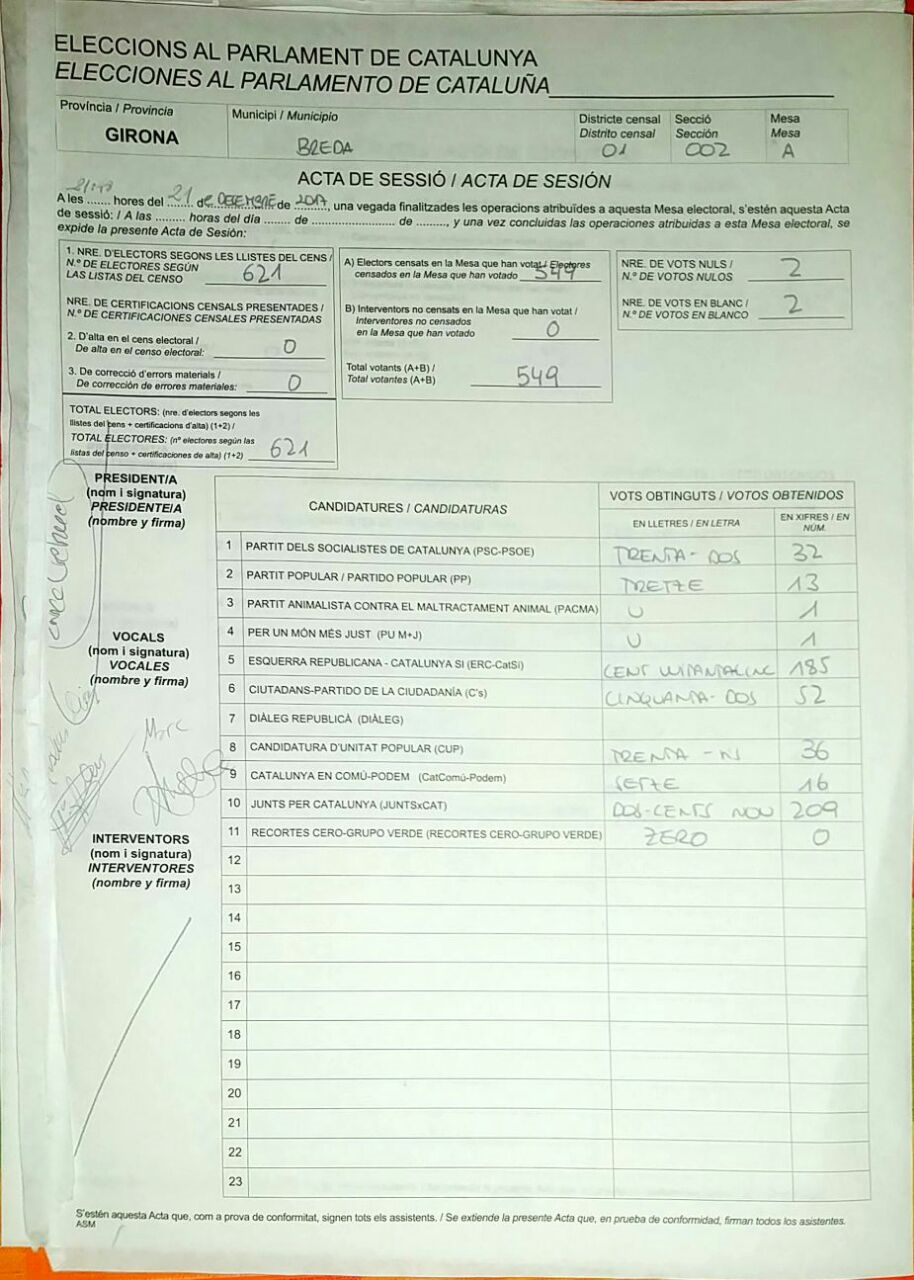 ELECCIONS AL PARLAMENT DE CATALUNYA
ELECCIONES AL PARLAMENTO DE CATALUÑA
Província / Provincia
GIRONA
Municipi / Municipio
BREDA
Districte censal
Distrito censal
01
Secció
Sección
002
Mesa
Mesa
A
ACTA DE SESSIÓ / ACTA DE SESIÓN
A les ....... hores del 21 de DESEMBRE de 2017, una vegada finalitzades les operacions atribuïdes a aquesta Mesa electoral, s'estén aquesta Acta
de sessió: / A las ......... horas del día ....... de ........................... de ........., y una vez concluidas las operaciones atribuidas a esta Mesa electoral, se
expide la presente Acta de Sesión:
1. NRE. D'ELECTORS SEGONS LES LLISTES DEL CENS /
N.º DE ELECTORES SEGÚN
LAS LISTAS DEL CENSO 621
NRE. DE CERTIFICACIONS CENSALS PRESENTADES /
N.º DE CERTIFICACIONES CENSALES PRESENTADAS
2. D'alta en el cens electoral /
De alta en el censo electoral: 0
3. De correcció d'errors materials /
De corrección de errores materiales: 0
TOTAL ELECTORS: (nre. d'electors segons les
llistes del cens + certificacions d'alta) (1+2) /
TOTAL ELECTORES: (nº electores según las
listas del censo + certificaciones de alta) (1+2) 621
A) Electors censats en la Mesa que han votat / Electores
censados en la Mesa que han votado 549
B) Interventors no censats en la Mesa que han votat /
Interventores no censados
en la Mesa que han votado 0
Total votants (A+B) /
Total votantes (A+B) 549
NRE. DE VOTS NULS /
N.º DE VOTOS NULOS 2
NRE. DE VOTS EN BLANC /
N.º DE VOTOS EN BLANCO 2
PRESIDENT/A
(nom i signatura)
PRESIDENTE/A
(nombre y firma)
VOCALS
(nom i signatura)
VOCALES
(nombre y firma)
Marc
INTERVENTORS
(nom i signatura)
INTERVENTORES
(nombre y firma)
CANDIDATURES / CANDIDATURAS
VOTS OBTINGUTS / VOTOS OBTENIDOS
EN LLETRES / EN LETRA
EN XIFRES / EN NÚM.
1 PARTIT DELS SOCIALISTES DE CATALUNYA (PSC-PSOE) TRENTA-DOS 32
2 PARTIT POPULAR / PARTIDO POPULAR (PP) TRETZE 13
3 PARTIT ANIMALISTA CONTRA EL MALTRACTAMENT ANIMAL (PACMA) U 1
4 PER UN MÓN MÉS JUST (PU M+J) U 1
5 ESQUERRA REPUBLICANA - CATALUNYA SI (ERC-CatSi) CENT 185
6 CIUTADANS-PARTIDO DE LA CIUDADANÍA (C's) CINQUANTA-DOS 52
7 DIÀLEG REPUBLICÀ (DIÀLEG)
8 CANDIDATURA D'UNITAT POPULAR (CUP) TRENTA - 36
9 CATALUNYA EN COMÚ-PODEM (CatComú-Podem) SETZE 16
10 JUNTS PER CATALUNYA (JUNTSxCAT) DOS-CENTS NOU 209
11 RECORTES CERO-GRUPO VERDE (RECORTES CERO-GRUPO VERDE) ZERO 0
12
13
14
15
16
17
18
19
20
21
22
23
S'estén aquesta Acta que, com a prova de conformitat, signen tots els assistents. / Se extiende la presente Acta que, en prueba de conformidad, firman todos los asistentes.
ASM